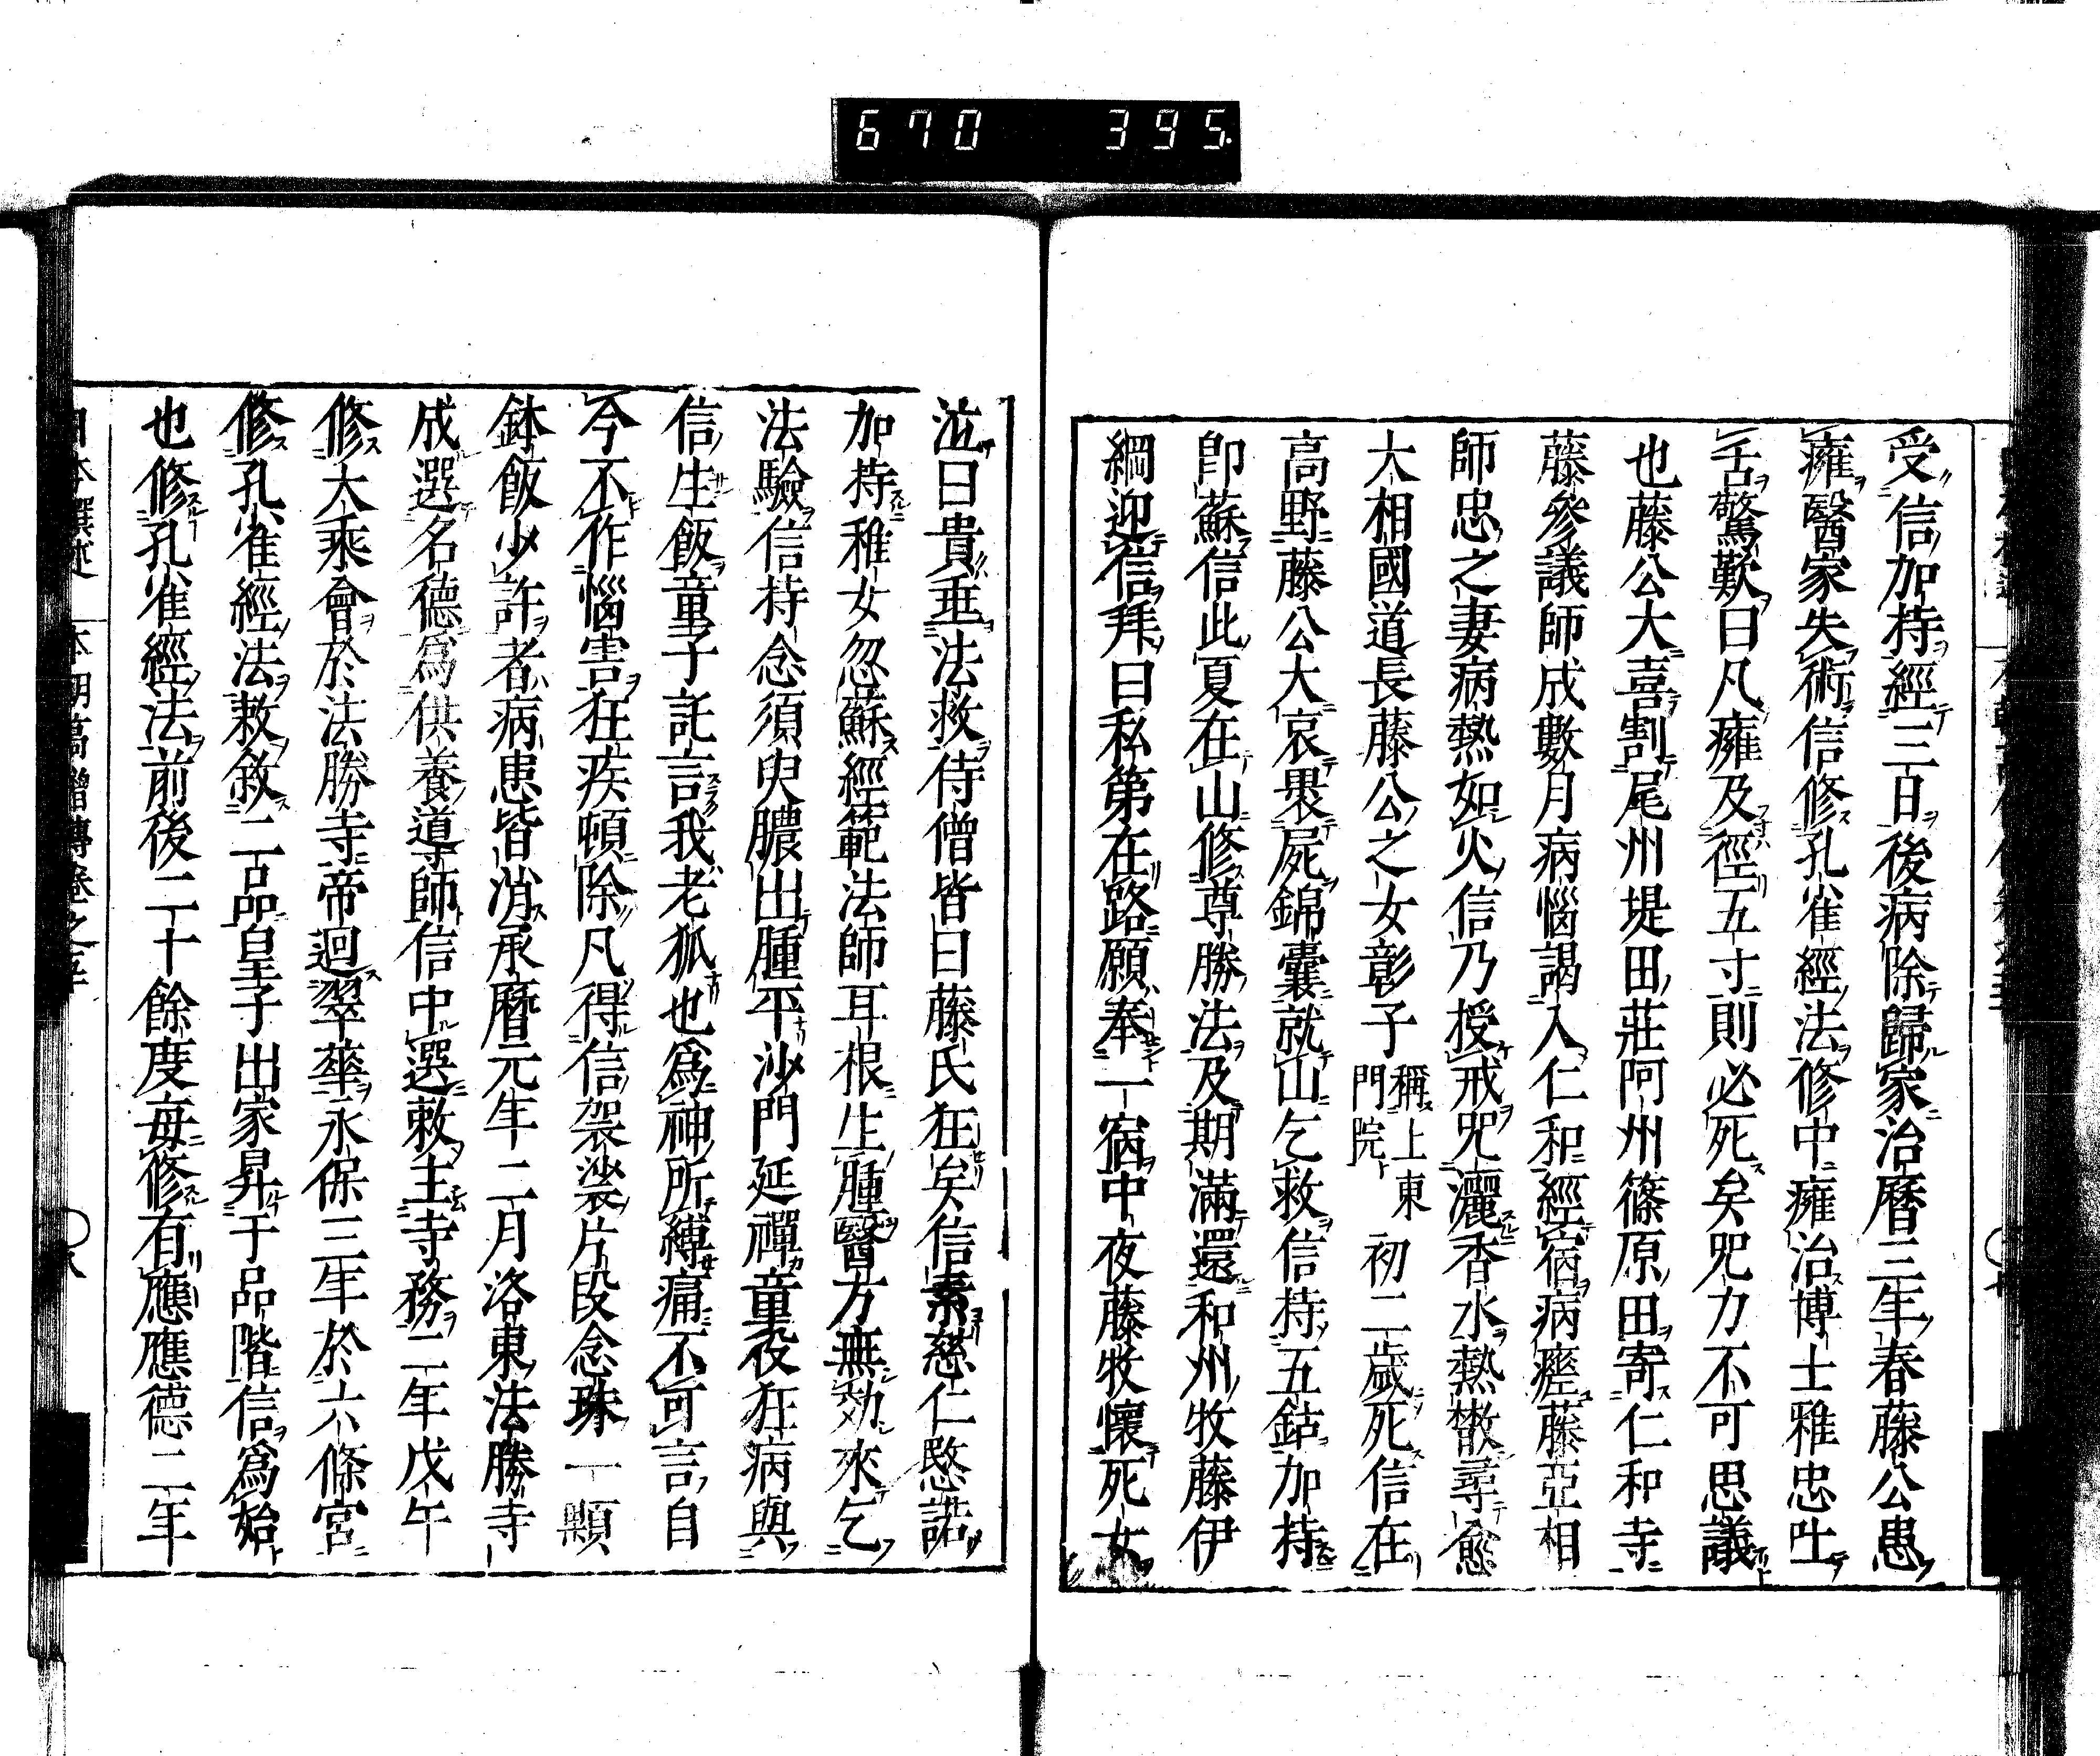 670 395
受信加持經三日後病除歸家治曆三年春藤公患
癰醫家失術信修孔雀經法修中癰治博士雅忠吐
舌驚歎曰凡癰及徑五寸則必死矣咒力不可思議
也藤公大喜割尾州堤田莊阿州篠原田寄仁和寺
藤參議師成數月病惱謁入仁和經宿病瘥藤亞相
師忠之妻病熱如火信乃授戒咒灑香水熱散尋愈
太相國道長藤公之女彰子稱上東門院初二歲死信在
高野藤公大哀褁屍錦囊就山乞救信持五鈷加持
卽蘇信此夏在山修尊勝法及期滿還和州牧藤伊
綱迎信拜曰私第在路願奉一宿中夜藤牧懷死女
泣曰貴垂法救侍僧皆曰藤氏狂矣信素慈仁愍諾
加持稚女忽蘇經範法師耳根生腫醫方無効來乞
法驗信持念須臾膿出腫平沙門延禪童役狂病與
信生飯童子託言我老狐也爲神所縛痛不可言自
今不作惱害狂疾頓除凡得信袈裟片段念珠一顆
鉢飯少許者病患皆消承曆元年二月洛東法勝寺
成選名德爲供養導師信中選敕主寺務二年戊午
修大乘會於法勝寺帝迴翠華永保三年於六條宮
修孔雀經法敕敘二品皇子出家昇于品階信爲始
也修孔雀經法前後二十餘度每修有應應德二年
本朝高僧傳卷之